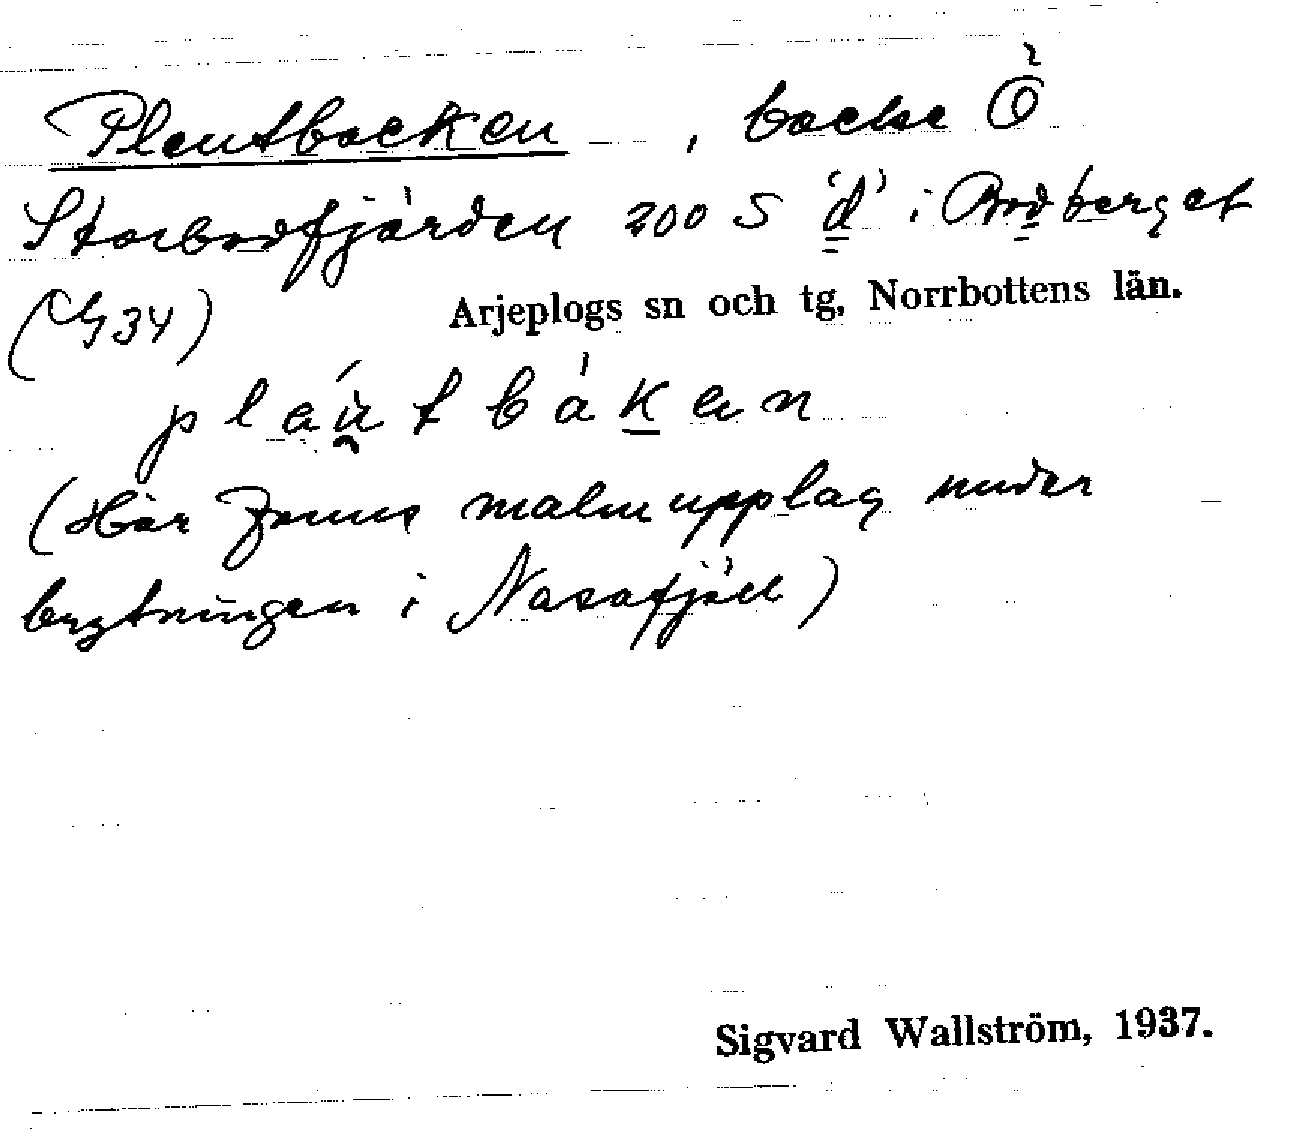 Pleutbacken, backe Ö
Storbodfjärden 200 S "d" i Bodberget
(G34) Arjeplogs sn och tg, Norrbottens län.
pleutbákan
(Här fanns malmupplag under
brytningen i Nasafjäll)
Sigvard Wallström, 1937.